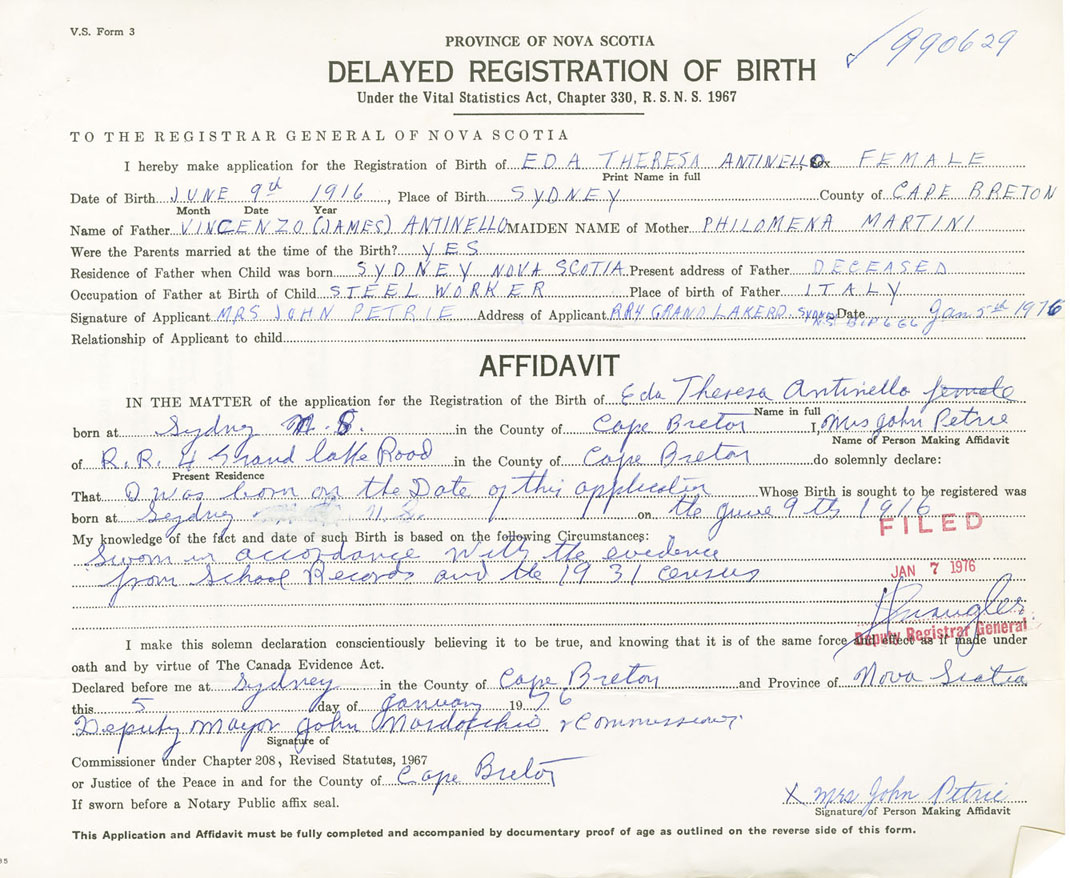 V.S. Form 3
990629
PROVINCE OF NOVA SCOTIA
DELAYED REGISTRATION OF BIRTH
Under the Vital Statistics Act, Chapter 330, R. S. N. S. 1967
TO THE REGISTRAR GENERAL OF NOVA SCOTIA
I hereby make application for the Registration of Birth of EDA THERESA ANTINELLO Sex FEMALE
Print Name in full
Date of Birth JUNE 9th 1916, Place of Birth SYDNEY County of CAPE BRETON
Month Date Year
Name of Father VINCENZO (JAMES) ANTINELLO MAIDEN NAME of Mother PHILOMENA MARTINI
Were the Parents married at the time of the Birth? YES
Residence of Father when Child was born SYDNEY NOVA SCOTIA Present address of Father DECEASED
Occupation of Father at Birth of Child STEEL WORKER Place of birth of Father ITALY
Signature of Applicant MRS JOHN PETRIE Address of Applicant RR4 GRAND LAKE RD SYDNEY Date Jan 5th 1976
N.S. B1P 6G6
Relationship of Applicant to child
AFFIDAVIT
IN THE MATTER of the application for the Registration of the Birth of Eda Theresa Antinello female
Name in full
born at Sydney N.S. in the County of Cape Breton I, Mrs John Petrie
Name of Person Making Affidavit
of R.R. 4 Grand Lake Road in the County of Cape Breton do solemnly declare:
Present Residence
That I was born on the Date of this application Whose Birth is sought to be registered was
born at Sydney N.S. on the June 9th 1916
FILED
My knowledge of the fact and date of such Birth is based on the following Circumstances:
Sworn in accordance with the evidence
from School Records and the 1931 census
JAN 7 1976
Deputy Registrar General
I make this solemn declaration conscientiously believing it to be true, and knowing that it is of the same force and effect as if made under
oath and by virtue of The Canada Evidence Act.
Declared before me at Sydney in the County of Cape Breton and Province of Nova Scotia
this 5 day of January 1976
Deputy Mayor John & Commissioner
Signature of
Commissioner under Chapter 208, Revised Statutes, 1967
or Justice of the Peace in and for the County of Cape Breton
If sworn before a Notary Public affix seal.
X Mrs John Petrie
Signature of Person Making Affidavit
This Application and Affidavit must be fully completed and accompanied by documentary proof of age as outlined on the reverse side of this form.